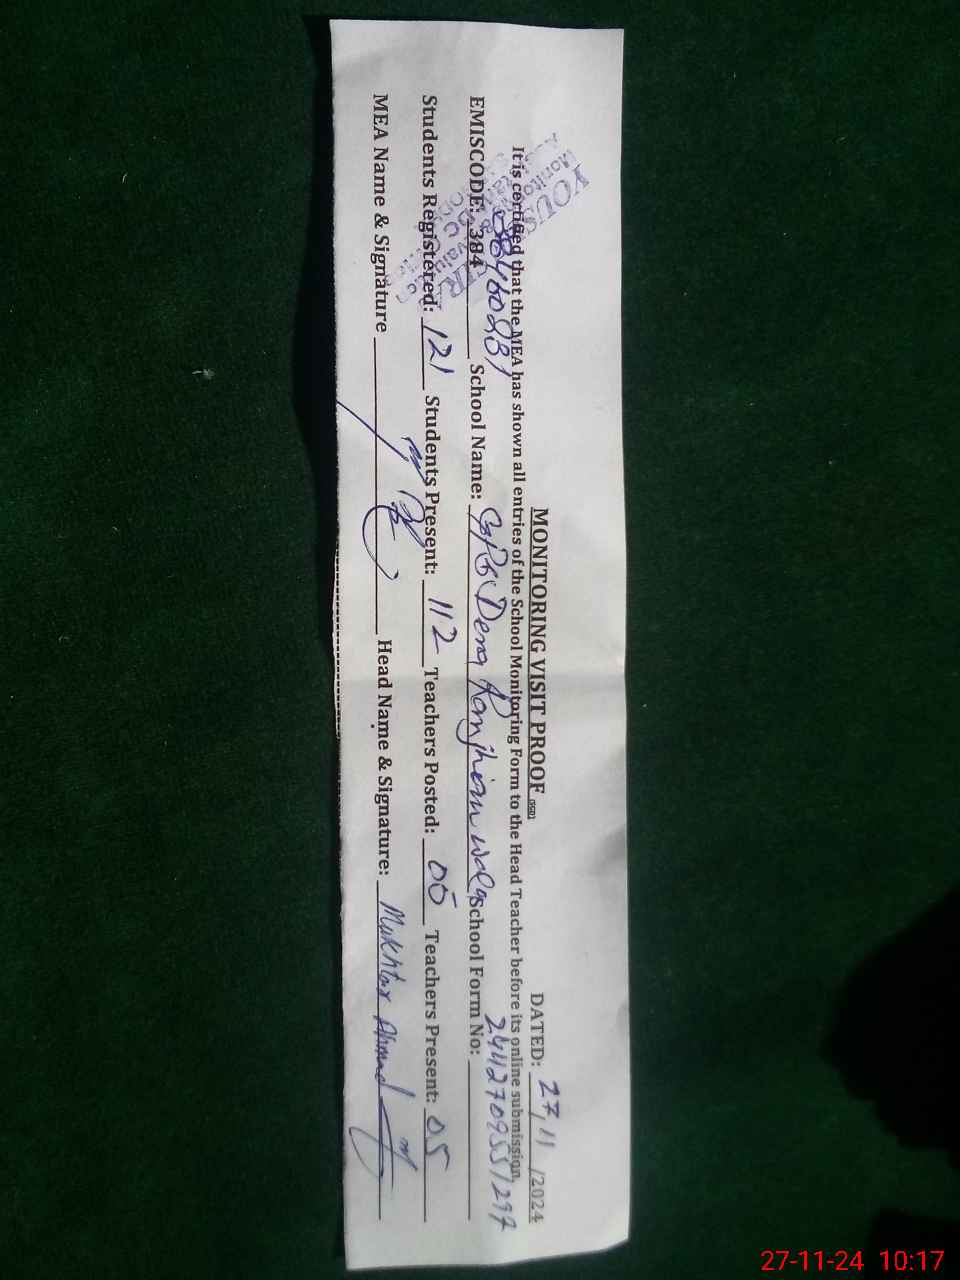 MONITORING VISIT PROOF (SSD) DATED: 27/11/2024
It is certified that the MEA has shown all entries of the School Monitoring Form to the Head Teacher before its online submission
EMISCODE: 384 38460281 School Name: GPS Dera Ranjhian wala School Form No: 24112709551297
Students Registered: 121 Students Present: 112 Teachers Posted: 05 Teachers Present: 05
MEA Name & Signature Head Name & Signature: Mukhtar Ahmad
27-11-24 10:17